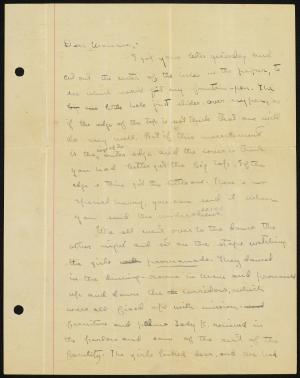 Dear Mamma,-
I got your letter yesterday and
cut out the outer of the circles in the paper, to
see which would fit my fountain-pen. The
little hole just slides over nipping, so
if the edge of the top is not thick that one will
do very well. But if this measurement
is the outer edge, and the cover is thick
you had better get the big top. If the
edge is thin get the little one. There is no
special hurry, you can send it when
you send the underclothes.
We all went over to the dance the
other night and sat on the steps watching
the girls promenade. They danced
in the dining-rooms in Main and promenaded
up and down the corridors, which
were all fixed up with mission
furniture and palms. Lady K. received in
the parlors and some of the rest of the
Faculty. The girls looked dear, and we had